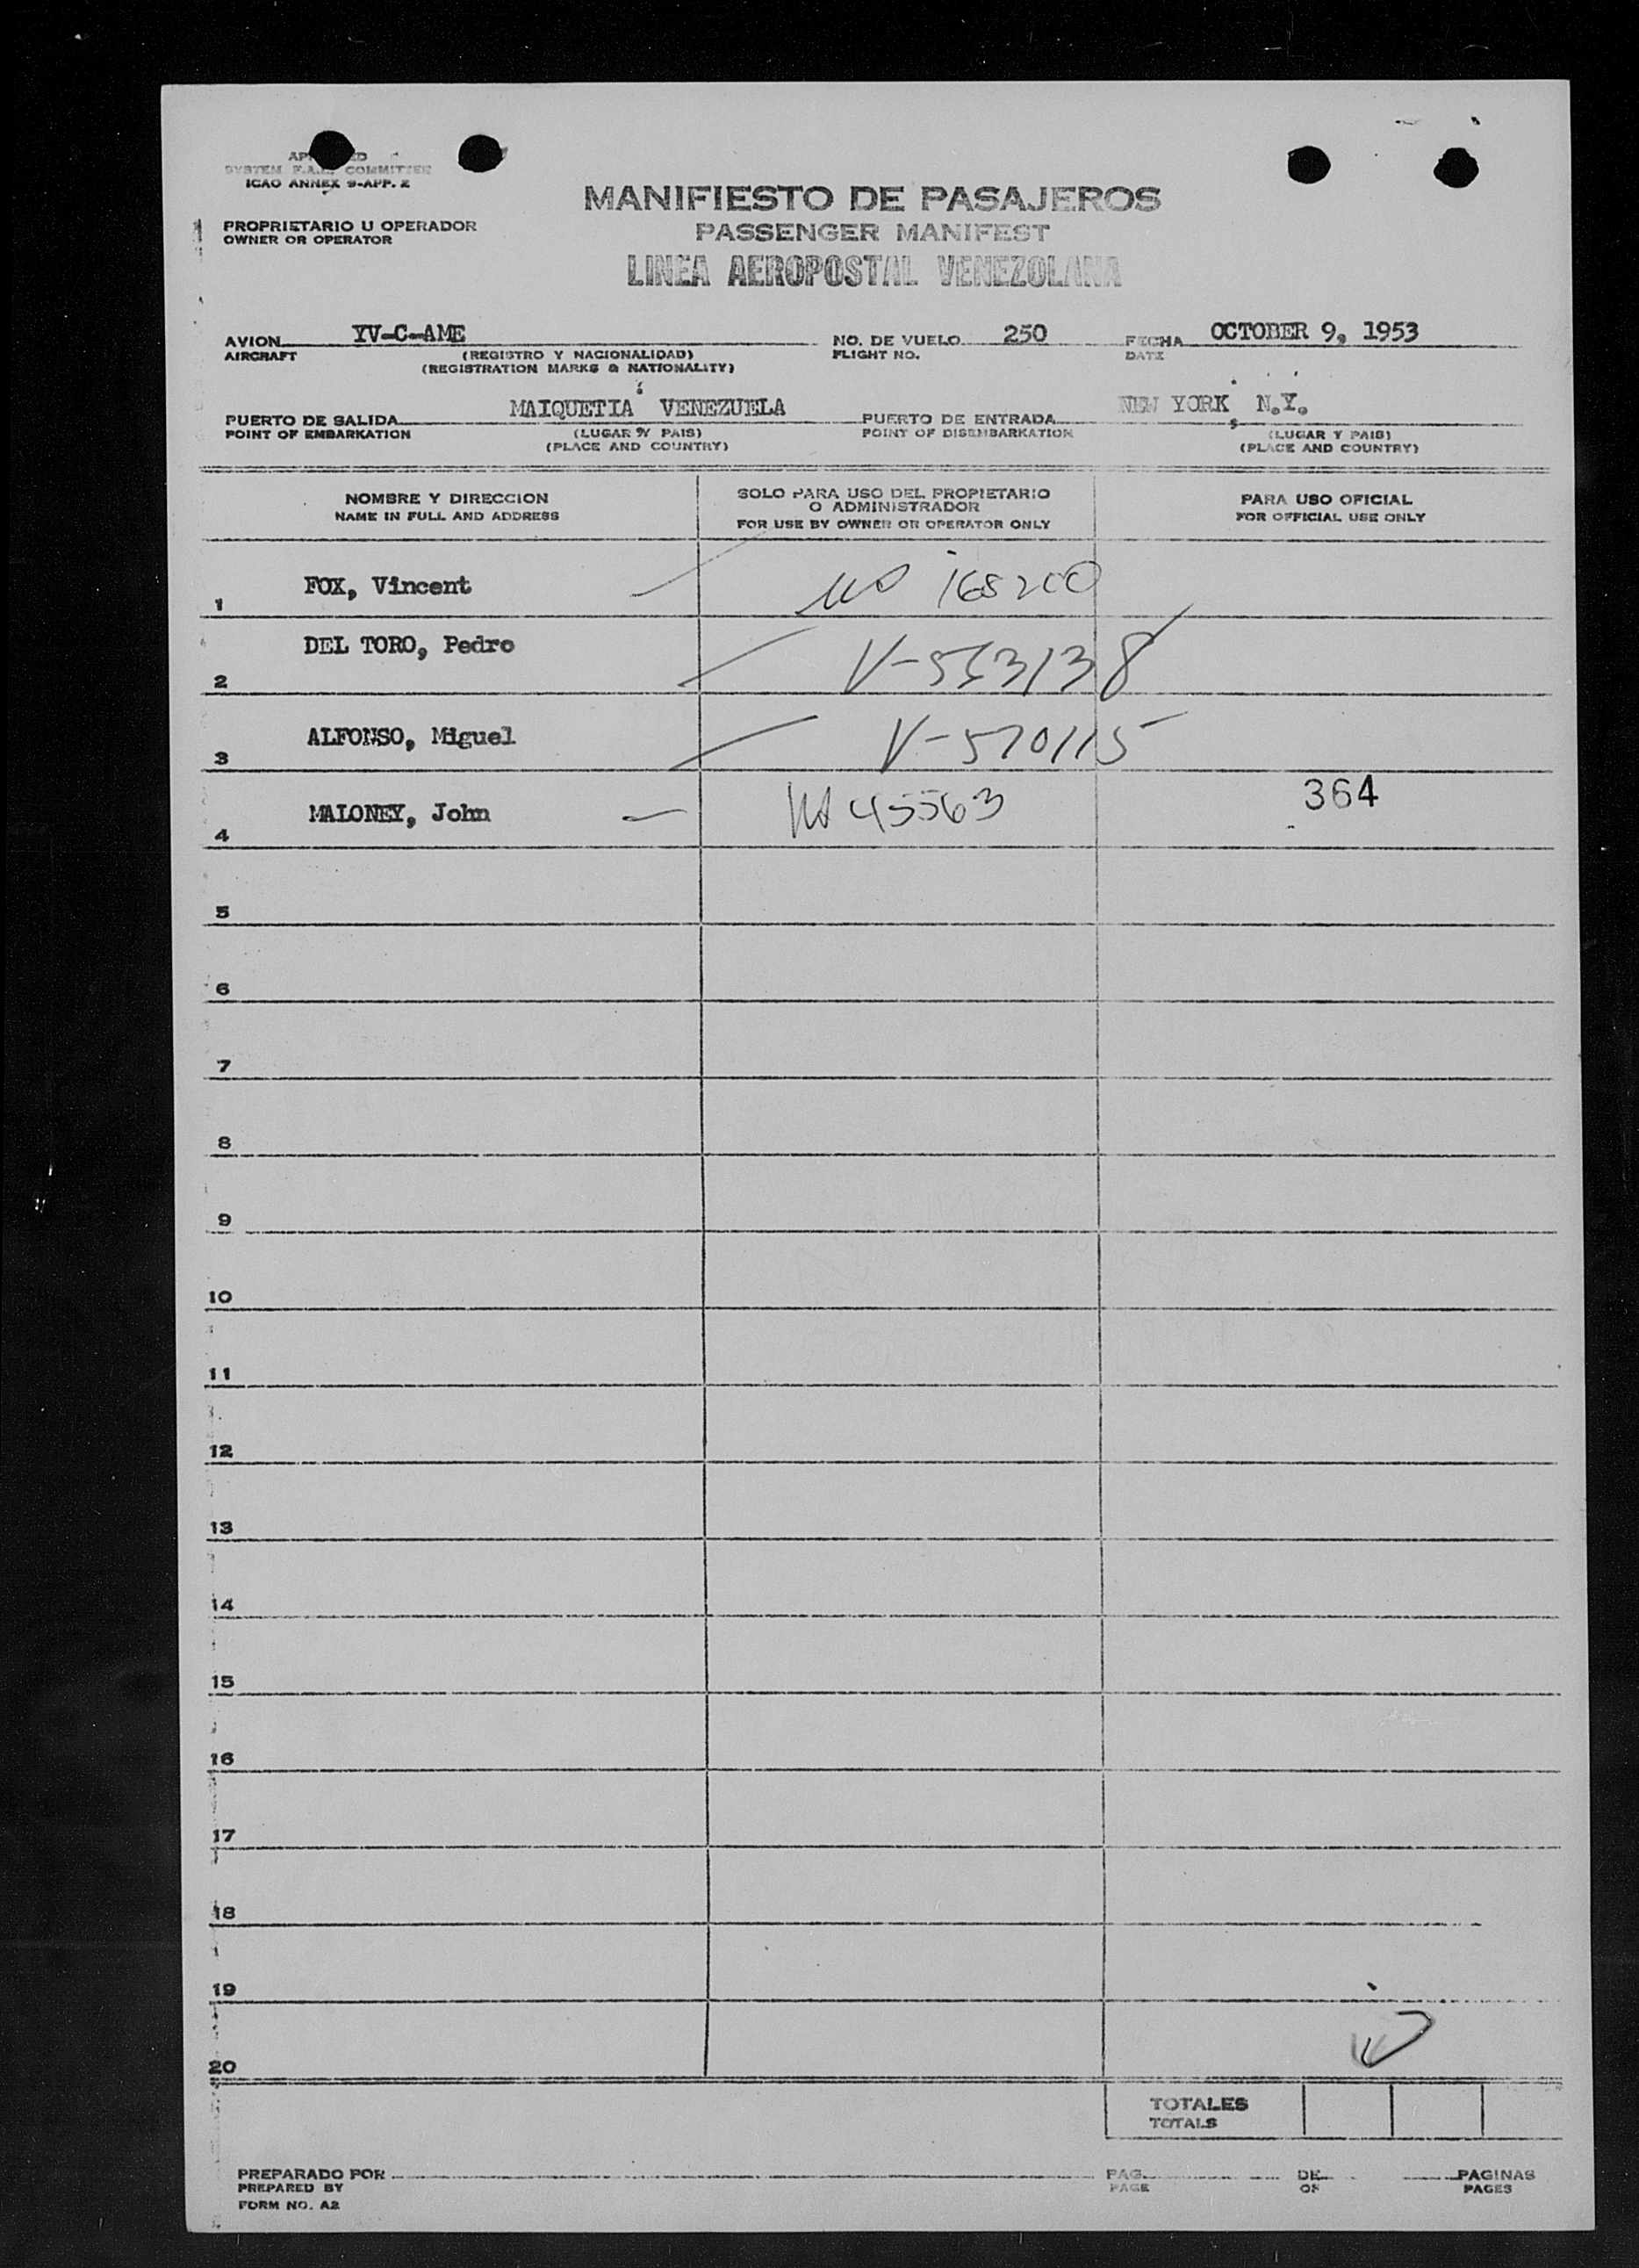 SYSTEM F.A.L. COMMITTEE
ICAO ANNEX 9-APP. 2
MANIFIESTO DE PASAJEROS
PROPRIETARIO U OPERADOR
OWNER OR OPERATOR
PASSENGER MANIFEST
LINEA AEROPOSTAL VENEZOLANA
AVION YV-C-AME NO. DE VUELO 250 FECHA OCTOBER 9, 1953
AIRCRAFT (REGISTRO Y NACIONALIDAD) FLIGHT NO. DATE
(REGISTRATION MARKS & NATIONALITY)
PUERTO DE SALIDA MAIQUETIA VENEZUELA PUERTO DE ENTRADA NEW YORK, N.Y.
POINT OF EMBARKATION (LUGAR Y PAIS) POINT OF DISEMBARKATION (LUGAR Y PAIS)
(PLACE AND COUNTRY) (PLACE AND COUNTRY)
NOMBRE Y DIRECCION SOLO PARA USO DEL PROPIETARIO PARA USO OFICIAL
O ADMINISTRADOR
NAME IN FULL AND ADDRESS FOR USE BY OWNER OR OPERATOR ONLY FOR OFFICIAL USE ONLY
1 FOX, Vincent 168200
2 DEL TORO, Pedro V-553138
3 ALFONSO, Miguel V-570115
4 MALONEY, John 45563 364
5
6
7
8
9
10
11
12
13
14
15
16
17
18
19
20
TOTALES
TOTALS
PREPARADO POR PAG. DE PAGINAS
PREPARED BY PAGE OF PAGES
FORM NO. A2